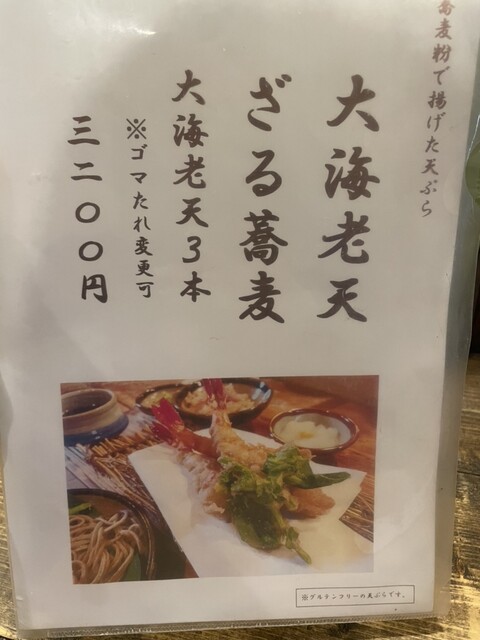 蕎麦粉で揚げた天ぷら
大海老天
ざる蕎麦
大海老天3本
※ゴマたれ変更可
三二〇〇円
※グルテンフリーの天ぷらです。